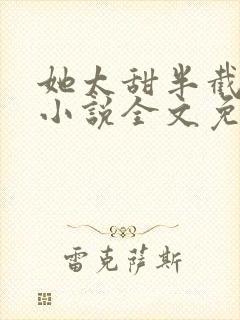 她太甜半截
小说全文免
雷克萨斯